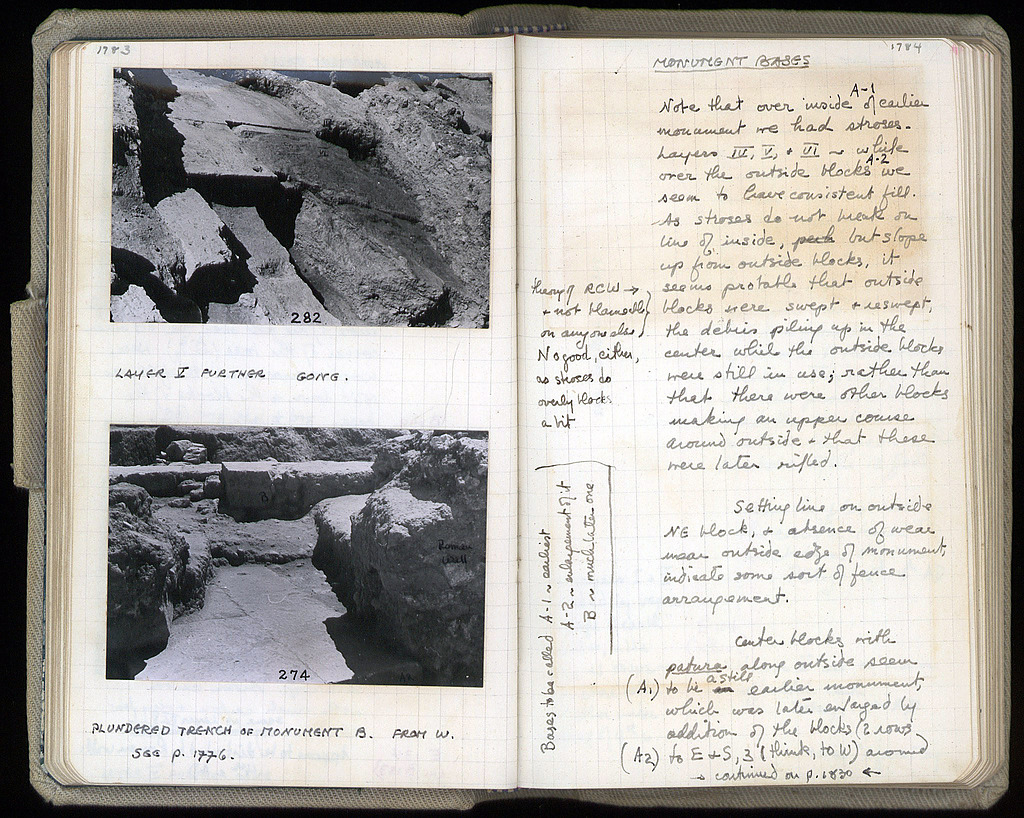 1783
282
LAYER V FURTHER GONE.
B
Roman
Well
274
PLUNDERED TRENCH OF MONUMENT B. FROM W.
SEE p. 1776.
1784
MONUMENT BASES
A-1
Note that over inside of earlier
monument we had stroses.
Layers IV, V, + VI ~ while
A-2
over the outside blocks we
seem to have consistent fill.
As stroses do not break on
line of inside, but slope
up from outside blocks, it
seems probable that outside
blocks were swept + reswept,
the debris piling up in the
center while the outside blocks
were still in use; rather than
that there were other blocks
making an upper course
around outside + that these
were later rifled.
theory of RCW →
+ not blamedly
on anyone else)
No good, either,
as stroses do
overly blocks
a bit
Bases to be called A-1 ~ earliest
A-2 ~ enlargement of it
B ~ much later one
Setting line on outside
NE block, + absence of wear
near outside edge of monument,
indicate some sort of fence
arrangement.
Center blocks with
patura along outside seem
(A1) to be a still earlier monument,
which was later enlarged by
addition of the blocks (2 rows
(A2) to E + S, 3 (think, to W) around
→ continued on p. 1830 ←